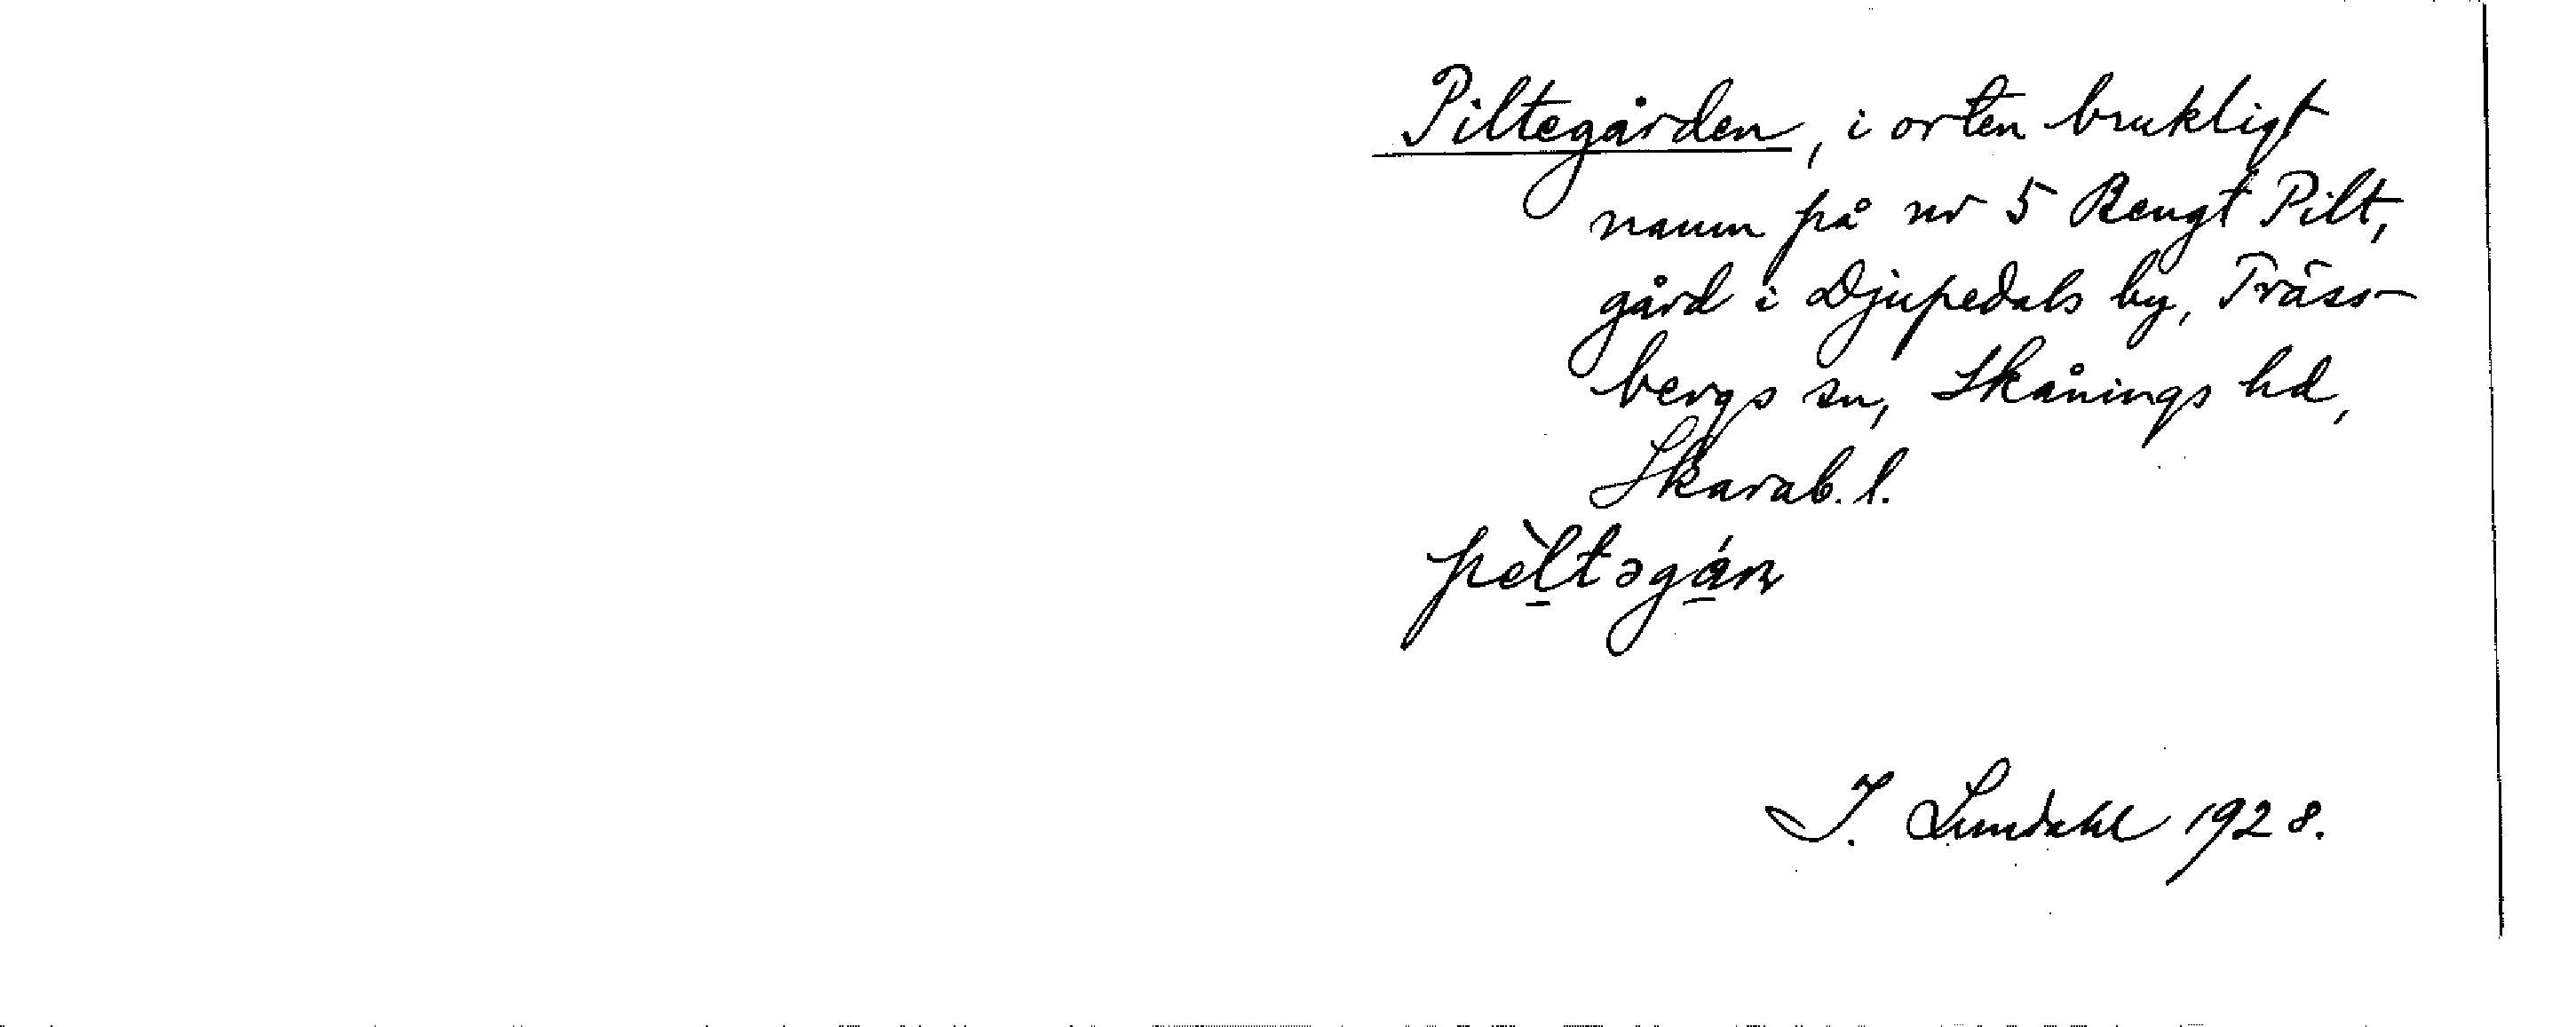 Piltegården, i orten brukligt
namn på nr 5 Bengt Pilt,
gård i Djupedals by, Träss-
bergs sn, Skånings hd,
Skarab. l.
pèl̠təgá̠n
I. Lundahl 1928.